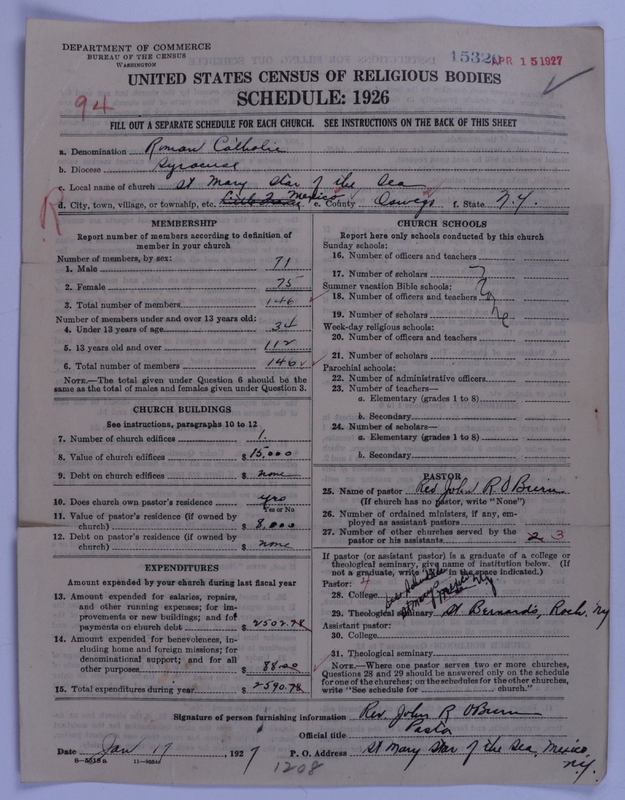 DEPARTMENT OF COMMERCE
BUREAU OF THE CENSUS
WASHINGTON
APR 15 1927
94
UNITED STATES CENSUS OF RELIGIOUS BODIES
SCHEDULE: 1926
FILL OUT A SEPARATE SCHEDULE FOR EACH CHURCH. SEE INSTRUCTIONS ON THE BACK OF THIS SHEET
a. Denomination Roman Catholic
b. Diocese Syracuse
c. Local name of church St Mary Star of the Sea
R
d. City, town, village, or township, etc. Mexico e. County Oswego f. State N.Y.
MEMBERSHIP
Report number of members according to definition of
member in your church
Number of members, by sex:
1. Male 71
2. Female 75
3. Total number of members 146
Number of members under and over 13 years old:
4. Under 13 years of age 34
5. 13 years old and over 112
6. Total number of members 146
NOTE.—The total given under Question 6 should be the
same as the total of males and females given under Question 3.
CHURCH BUILDINGS
See instructions, paragraphs 10 to 12
7. Number of church edifices 1.
8. Value of church edifices $ 15,000
9. Debt on church edifices $ none
10. Does church own pastor's residence yes
Yes or No
11. Value of pastor's residence (if owned by
church) $ 8,000
12. Debt on pastor's residence (if owned by
church) $ none
EXPENDITURES
Amount expended by your church during last fiscal year
13. Amount expended for salaries, repairs,
and other running expenses; for im-
provements or new buildings; and for
payments on church debt $ 2502.78
14. Amount expended for benevolences, in-
cluding home and foreign missions; for
denominational support; and for all
other purposes $ 88.00
15. Total expenditures during year $ 2590.78
CHURCH SCHOOLS
Report here only schools conducted by this church
Sunday schools:
16. Number of officers and teachers
17. Number of scholars
Summer vacation Bible schools:
18. Number of officers and teachers
None
19. Number of scholars
Week-day religious schools:
20. Number of officers and teachers
21. Number of scholars
Parochial schools:
22. Number of administrative officers
23. Number of teachers—
a. Elementary (grades 1 to 8)
b. Secondary
24. Number of scholars—
a. Elementary (grades 1 to 8)
b. Secondary
PASTOR
25. Name of pastor Rev John R. O'Burn
(If church has no pastor, write "None")
26. Number of ordained ministers, if any, em-
ployed as assistant pastors
27. Number of other churches served by the
pastor or his assistants 2 3
If pastor (or assistant pastor) is a graduate of a college or
theological seminary, give name of institution below. (If
not a graduate, write "No" in the space indicated.)
Pastor: 4
28. College
29. Theological seminary St. Bernard's, Roch. NY
Assistant pastor:
30. College
31. Theological seminary
NOTE.—Where one pastor serves two or more churches,
Questions 28 and 29 should be answered only on the schedule
for one of the churches; on the schedules for the other churches,
write "See schedule for church."
Signature of person furnishing information Rev. John R O'Burn
Official title Pastor
Date Jan 17 1927 P. O. Address St Mary Star of the Sea, Mexico,
N.Y.
1208